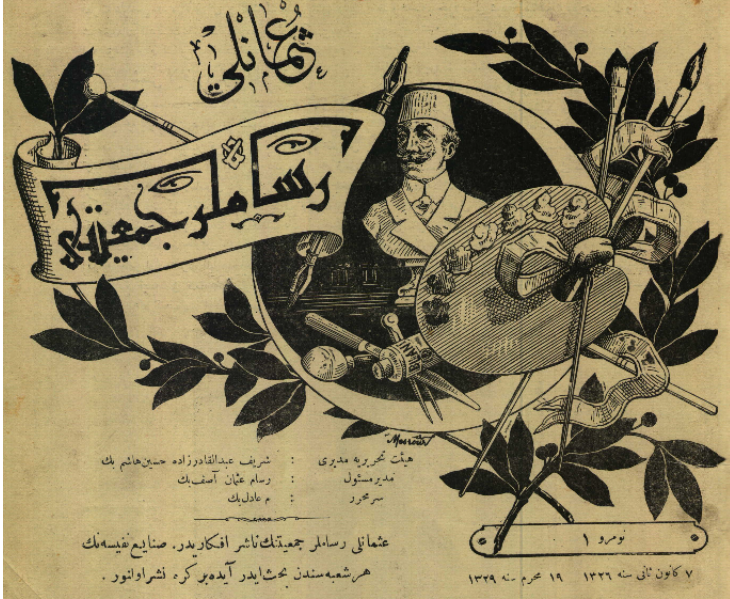 عثمانلی
رساملر جمعیتی
هیئت تحریریه مدیری : شریف عبدالقادرزاده حسین هاشم بك
مدیر مسئول : رسام عثمان آصف بك
سرمحرر : م عادل بك
عثمانلی رساملر جمعیتنك ناشر افكاریدر. صنایع نفیسه‌نك
هر شعبه سندن بحث ایدر آیده بر كره نشر اولنور .
نومرو ١
٧ كانون ثانی سنه ١٣٢٦ ١٩ محرم سنه ١٣٢٩